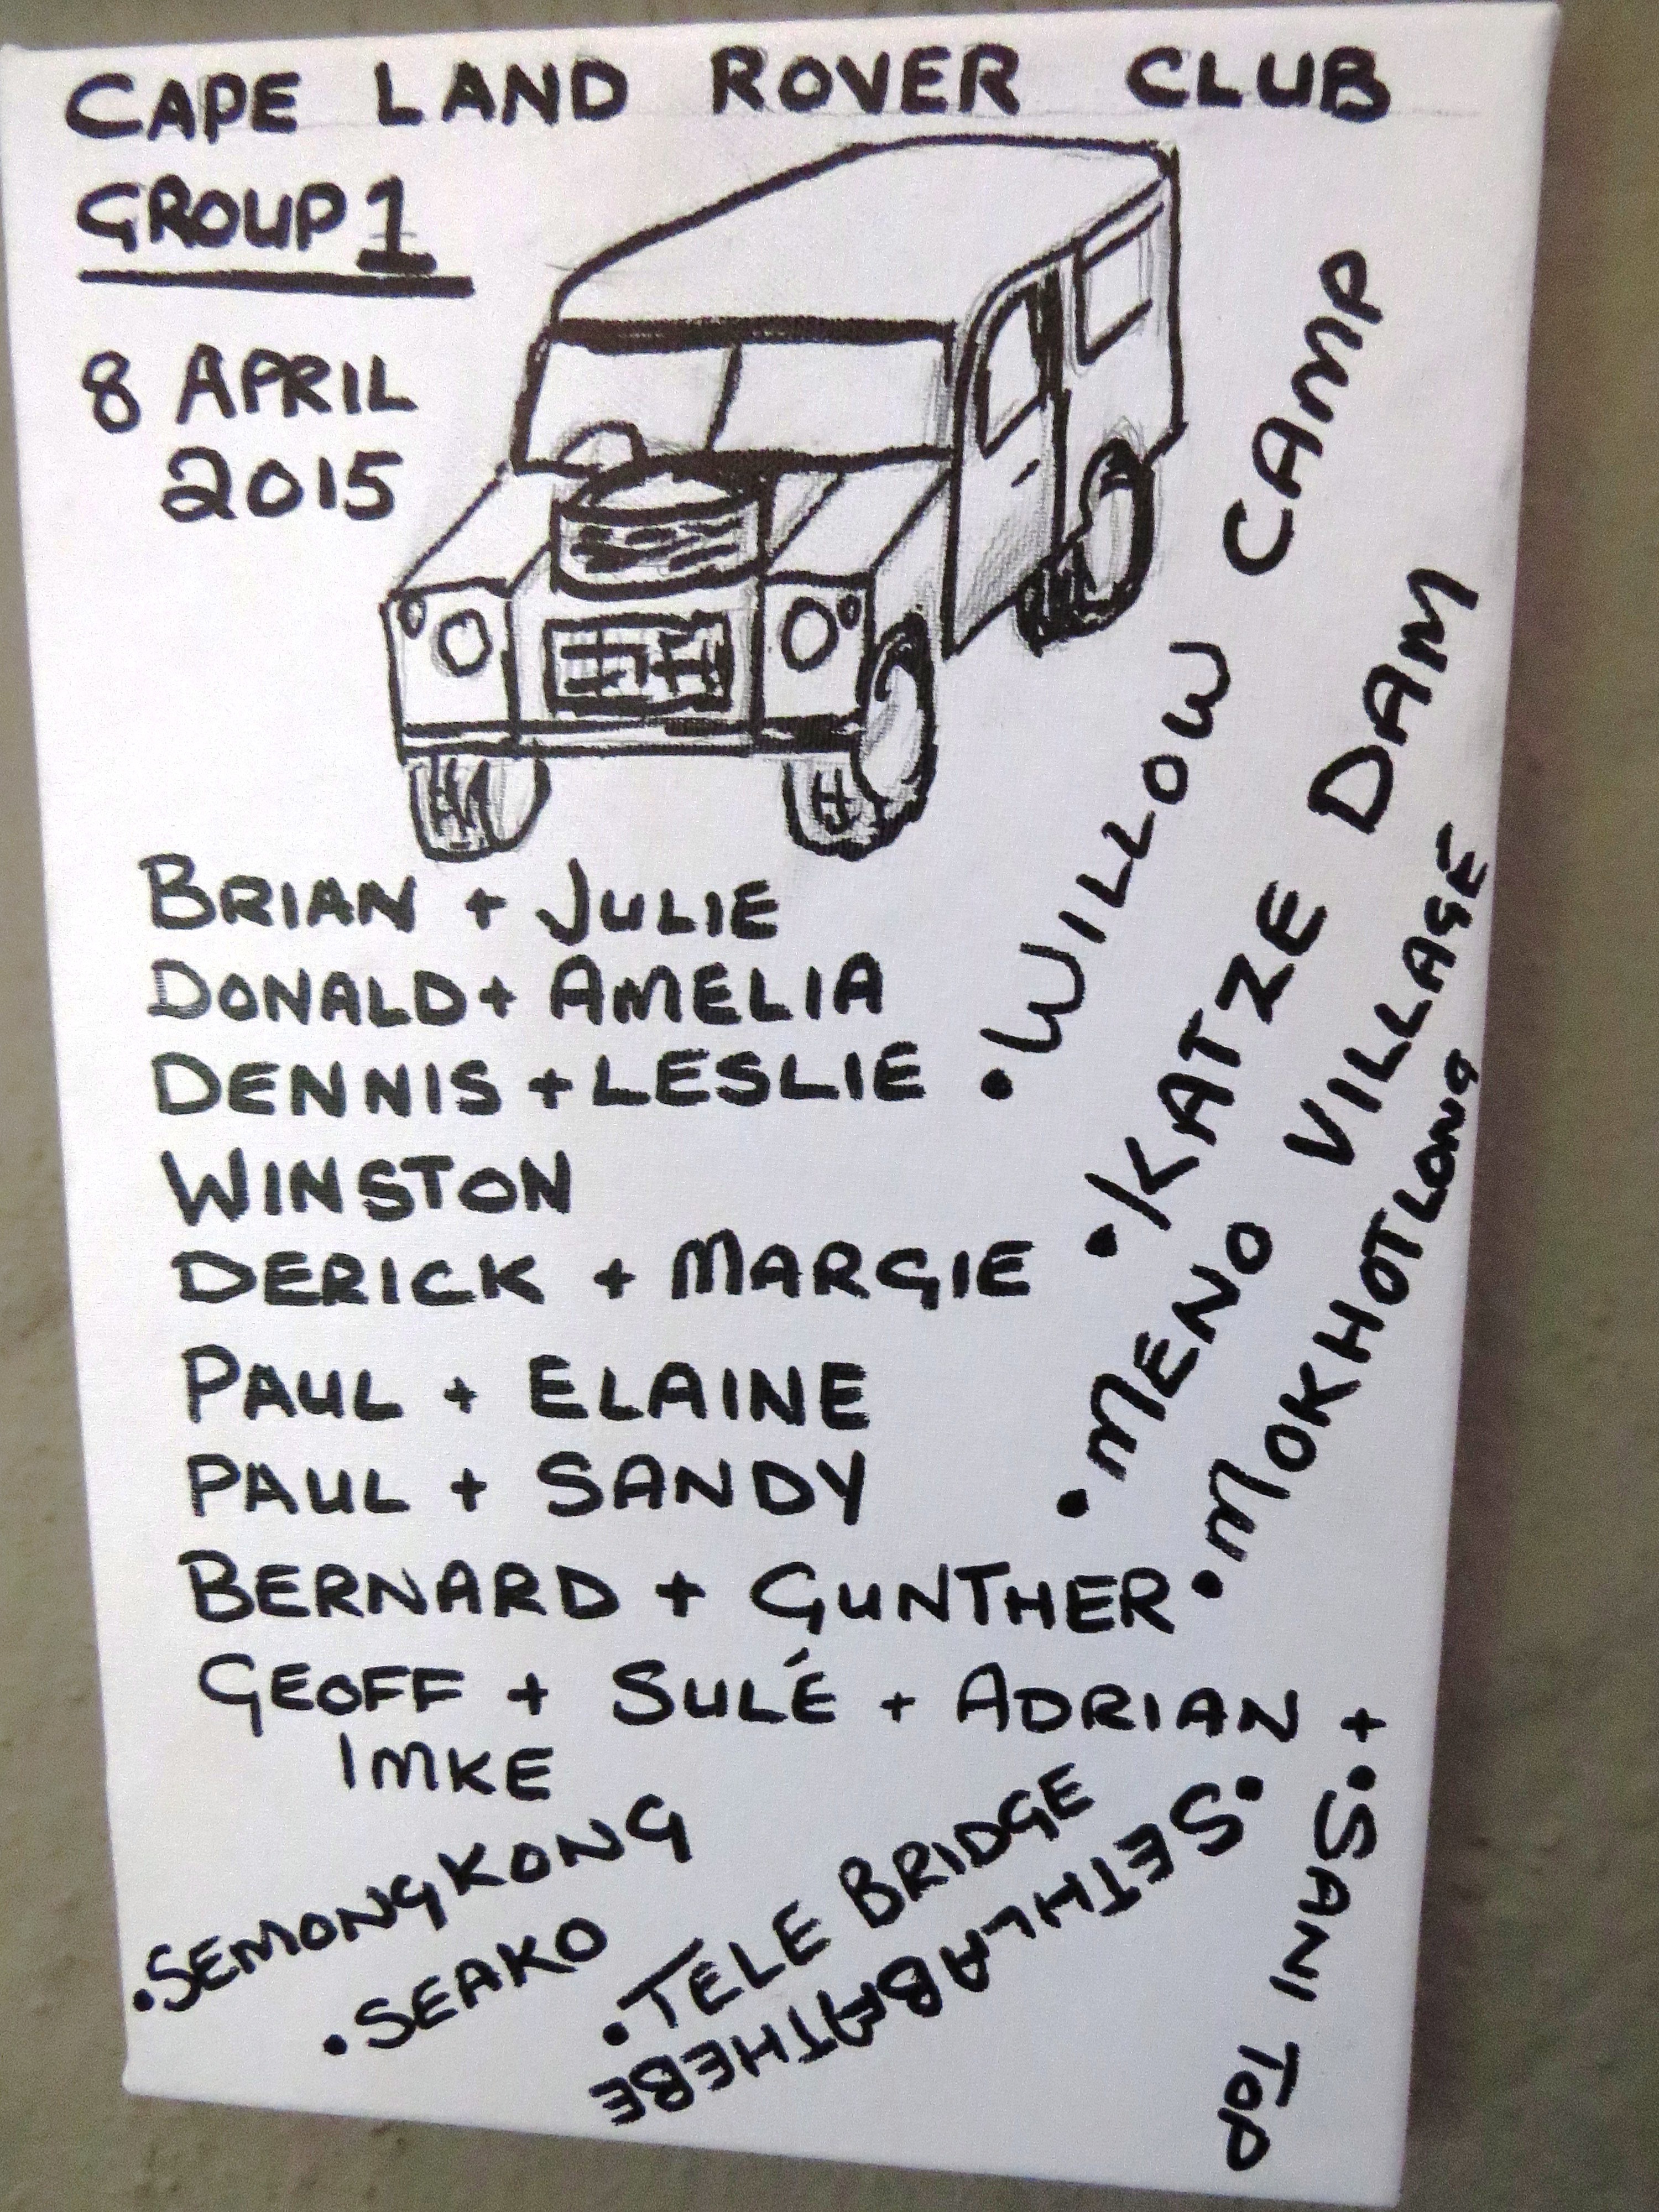 CAPE LAND ROVER CLUB
GROUP 1
8 APRIL
2015
BRIAN + JULIE
DONALD + AMELIA
DENNIS + LESLIE
WINSTON
DERICK + MARGIE
PAUL + ELAINE
PAUL + SANDY
BERNARD + GUNTHER
GEOFF + SULÉ + ADRIAN +
IMKE
• WILLOW CAMP
• KATZE DAM
• MENO VILLAGE
• MOKHOTLONG
• SANI TOP
• SETHLABATHEBE
• TELE BRIDGE
• SEAKO
• SEMONGKONG